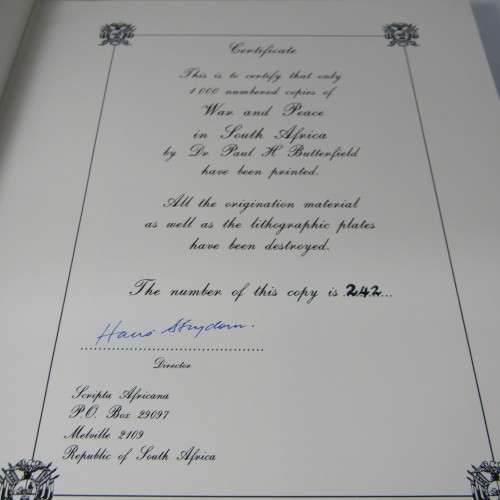 Certificate
This is to certify that only
1 000 numbered copies of
War and Peace
in South Africa
by Dr Paul H Butterfield
have been printed.
All the origination material
as well as the lithographic plates
have been destroyed.
The number of this copy is 242...
Hans Strydom.
Director
Scripta Africana
P.O. Box 29097
Melville 2109
Republic of South Africa